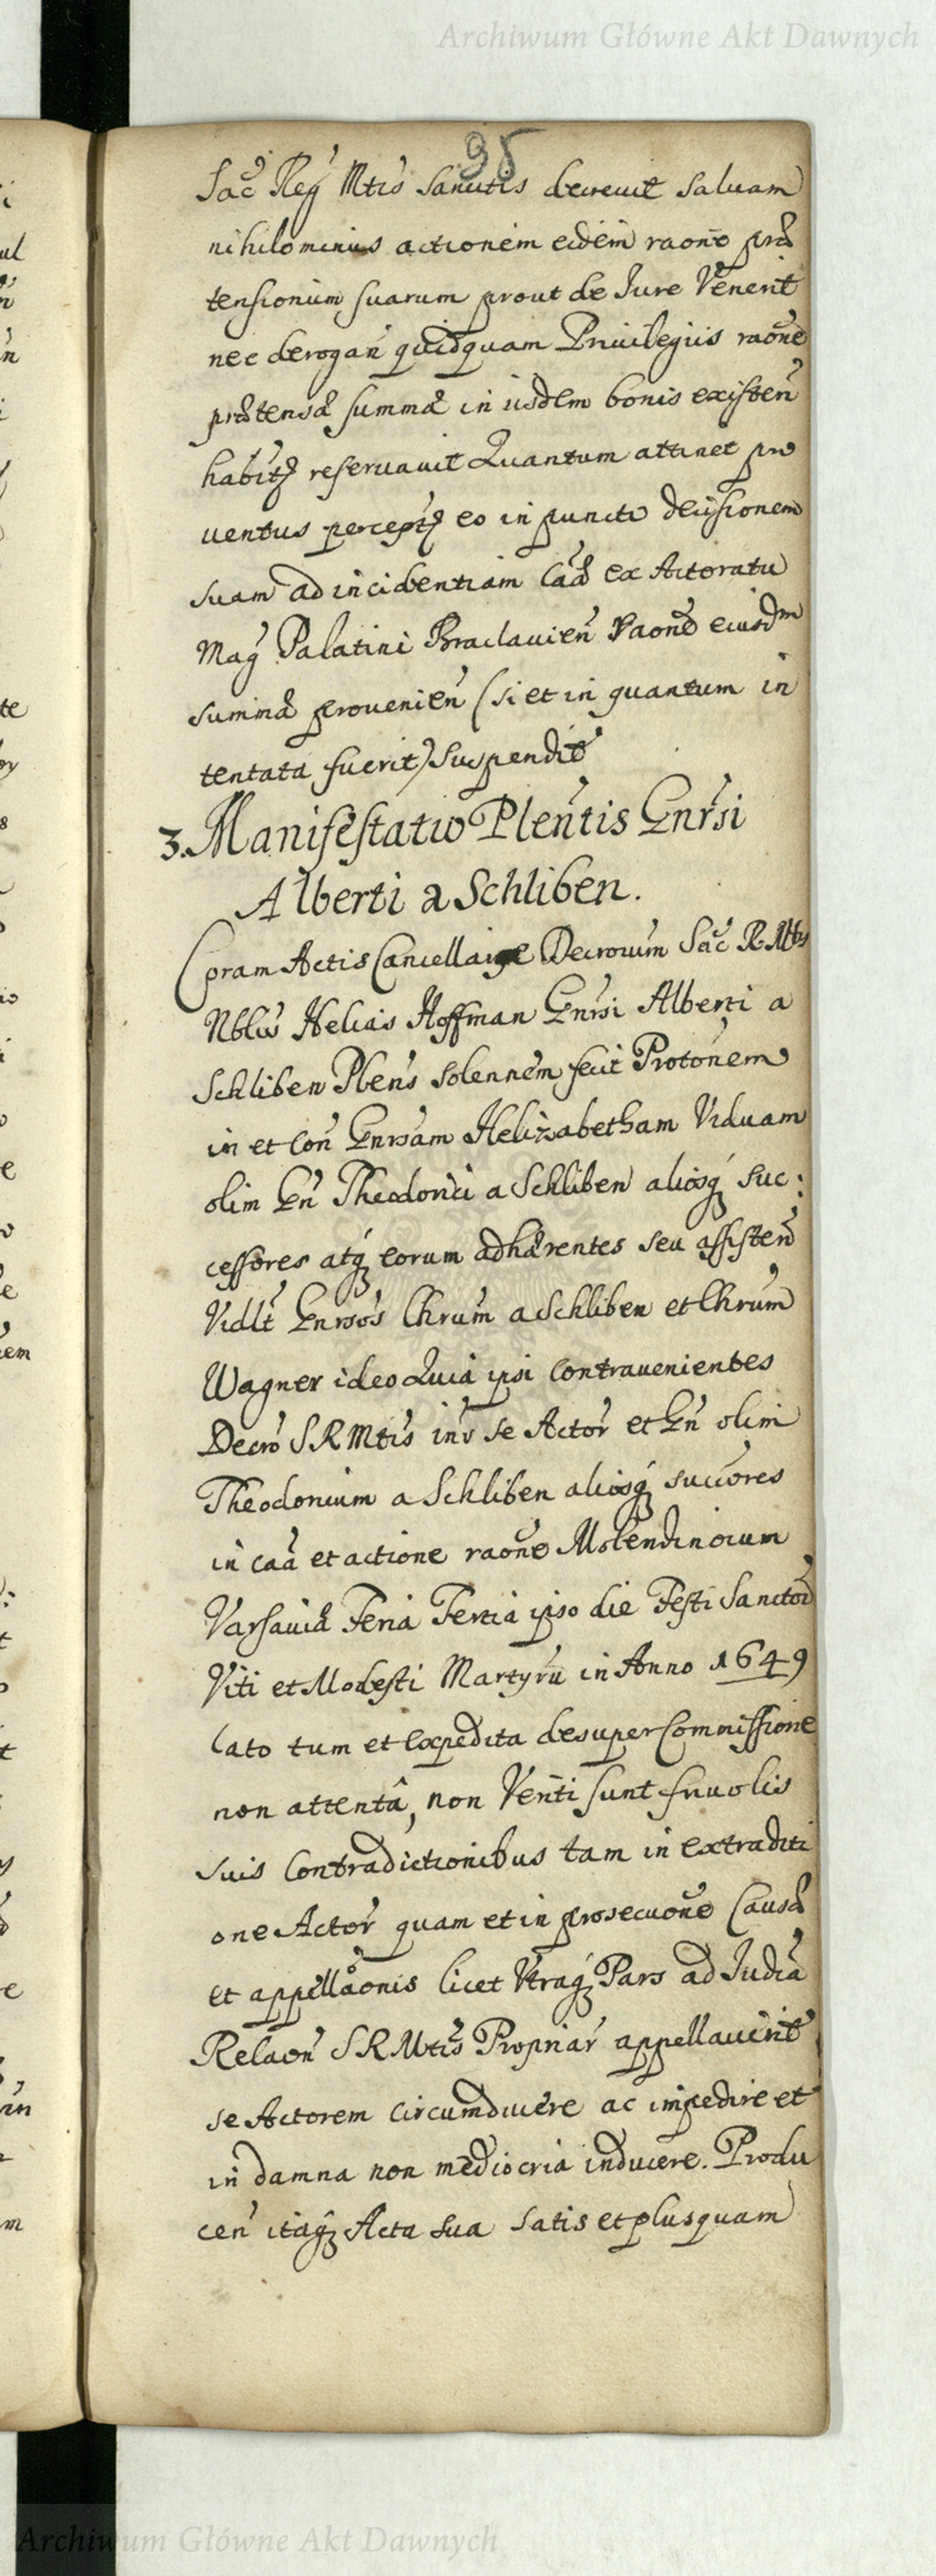 Archiwum Główne Akt Dawnych
95
Sac̃ Reg̃ Mtis̃ Sancitis decreuit saluam
nihilominus actionem eidem raõne præ
tensionum suarum prout de Iure Venerit
nec derogañ quidquam Priuilegijs raõne
prætensæ summæ in ijsdem bonis existeñ
habitq̃ reseruauit Quantum attinet pro
uentus perceptq̃ eo in puncto decisionem
suam ad incidentiam Cãæ ex Actoratu
Mag̃ Palatini Braclauieñ raõne eiusdm
summæ prouenieñ (si et in quantum in
tentata fuerit) suspendit
3. Manifestatio Pleñtis Gnr̃si
Alberti a Schliben.
Coram Actis Cancellariæ Decrorum Sac̃ R. Mtis
Nblis Helias Hoffman Gnr̃si Alberti a
Schliben Pleñs solennem fecit Protõnem
in et con̄ Gnrsam Helizabetham Viduam
olim Gñ Theodorici a Schliben aliosq́ suc:
cessores atq́ eorum adhærentes seu assisteñ
Vidlt̃ Gnrsos Chrum̃ a Schliben et Chrum̃
Wagner ideo Quia ipsi contrauenientes
Decro S R Mtis̃ inr̃ se Actor̃ et Gñ olim
Theodoricum a Schliben aliosq́ succores
in caã et actione raõne Molendinorum
Varsauiæ Feria Tertia ipso die Festi Sanctor̃
Viti et Modesti Martyrũ in Anno 1649
lato tum et expedita desuper Commissione
non attentâ, non Veriti sunt friuolis
suis contradictionibus tam in extraditi
one Actor̃ quam et in prosecuõne Causæ
et appellaõnis licet Vtraq́ Pars ad Iudia
Relaoñ S R Mtis̃ Propriar̃ appellauerit
se Actorem circumducere ac impedire et
in damna non mediocria inducere. Produ
ceñ itaq̃ Acta sua satis et plusquam
Archiwum Główne Akt Dawnych